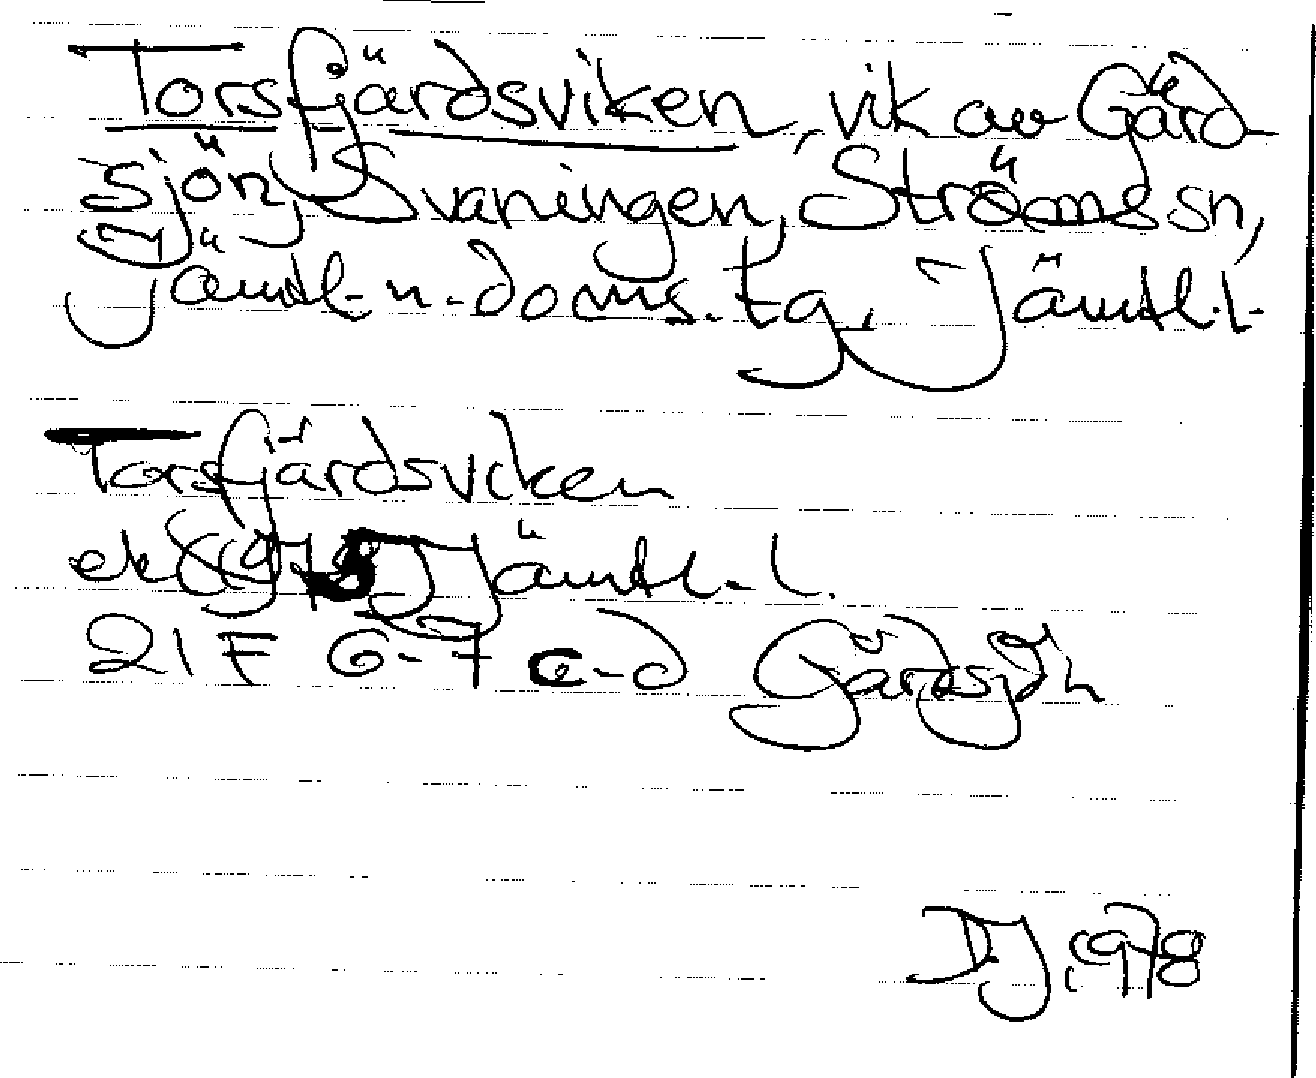 Torsfjärdsviken, vik av Gärd
sjön, Svaningen, Ströms sn,
Jämtl. n. doms. tg, Jämtl. l.
Torsfjärdsviken
ek Jämtl. l.
21 F 6-7 c-d Gärdsjön
DJ 1978